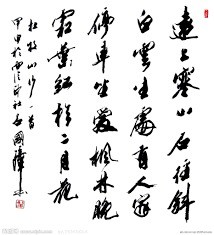 遠上寒山石徑斜
白雲生處有人家
停車坐愛楓林晚
霜葉紅於二月花
杜牧山行一首
甲申